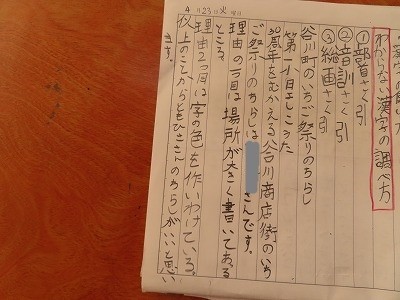 4月23日火曜日
漢字の使い方
わからない漢字の調べ方
①部首さく引
②音訓さく引
③総画さく引
谷川町のいちご祭りのちらし
30周年をむかえる谷川商店街のいち
ご祭りのちらしは さんです。
理由の一つ目は場所が大きく書いてある
ところ。
理由2つ目は字の色を作いわけている。
以上のことからともひささんのちらしがいいと思い
ます。